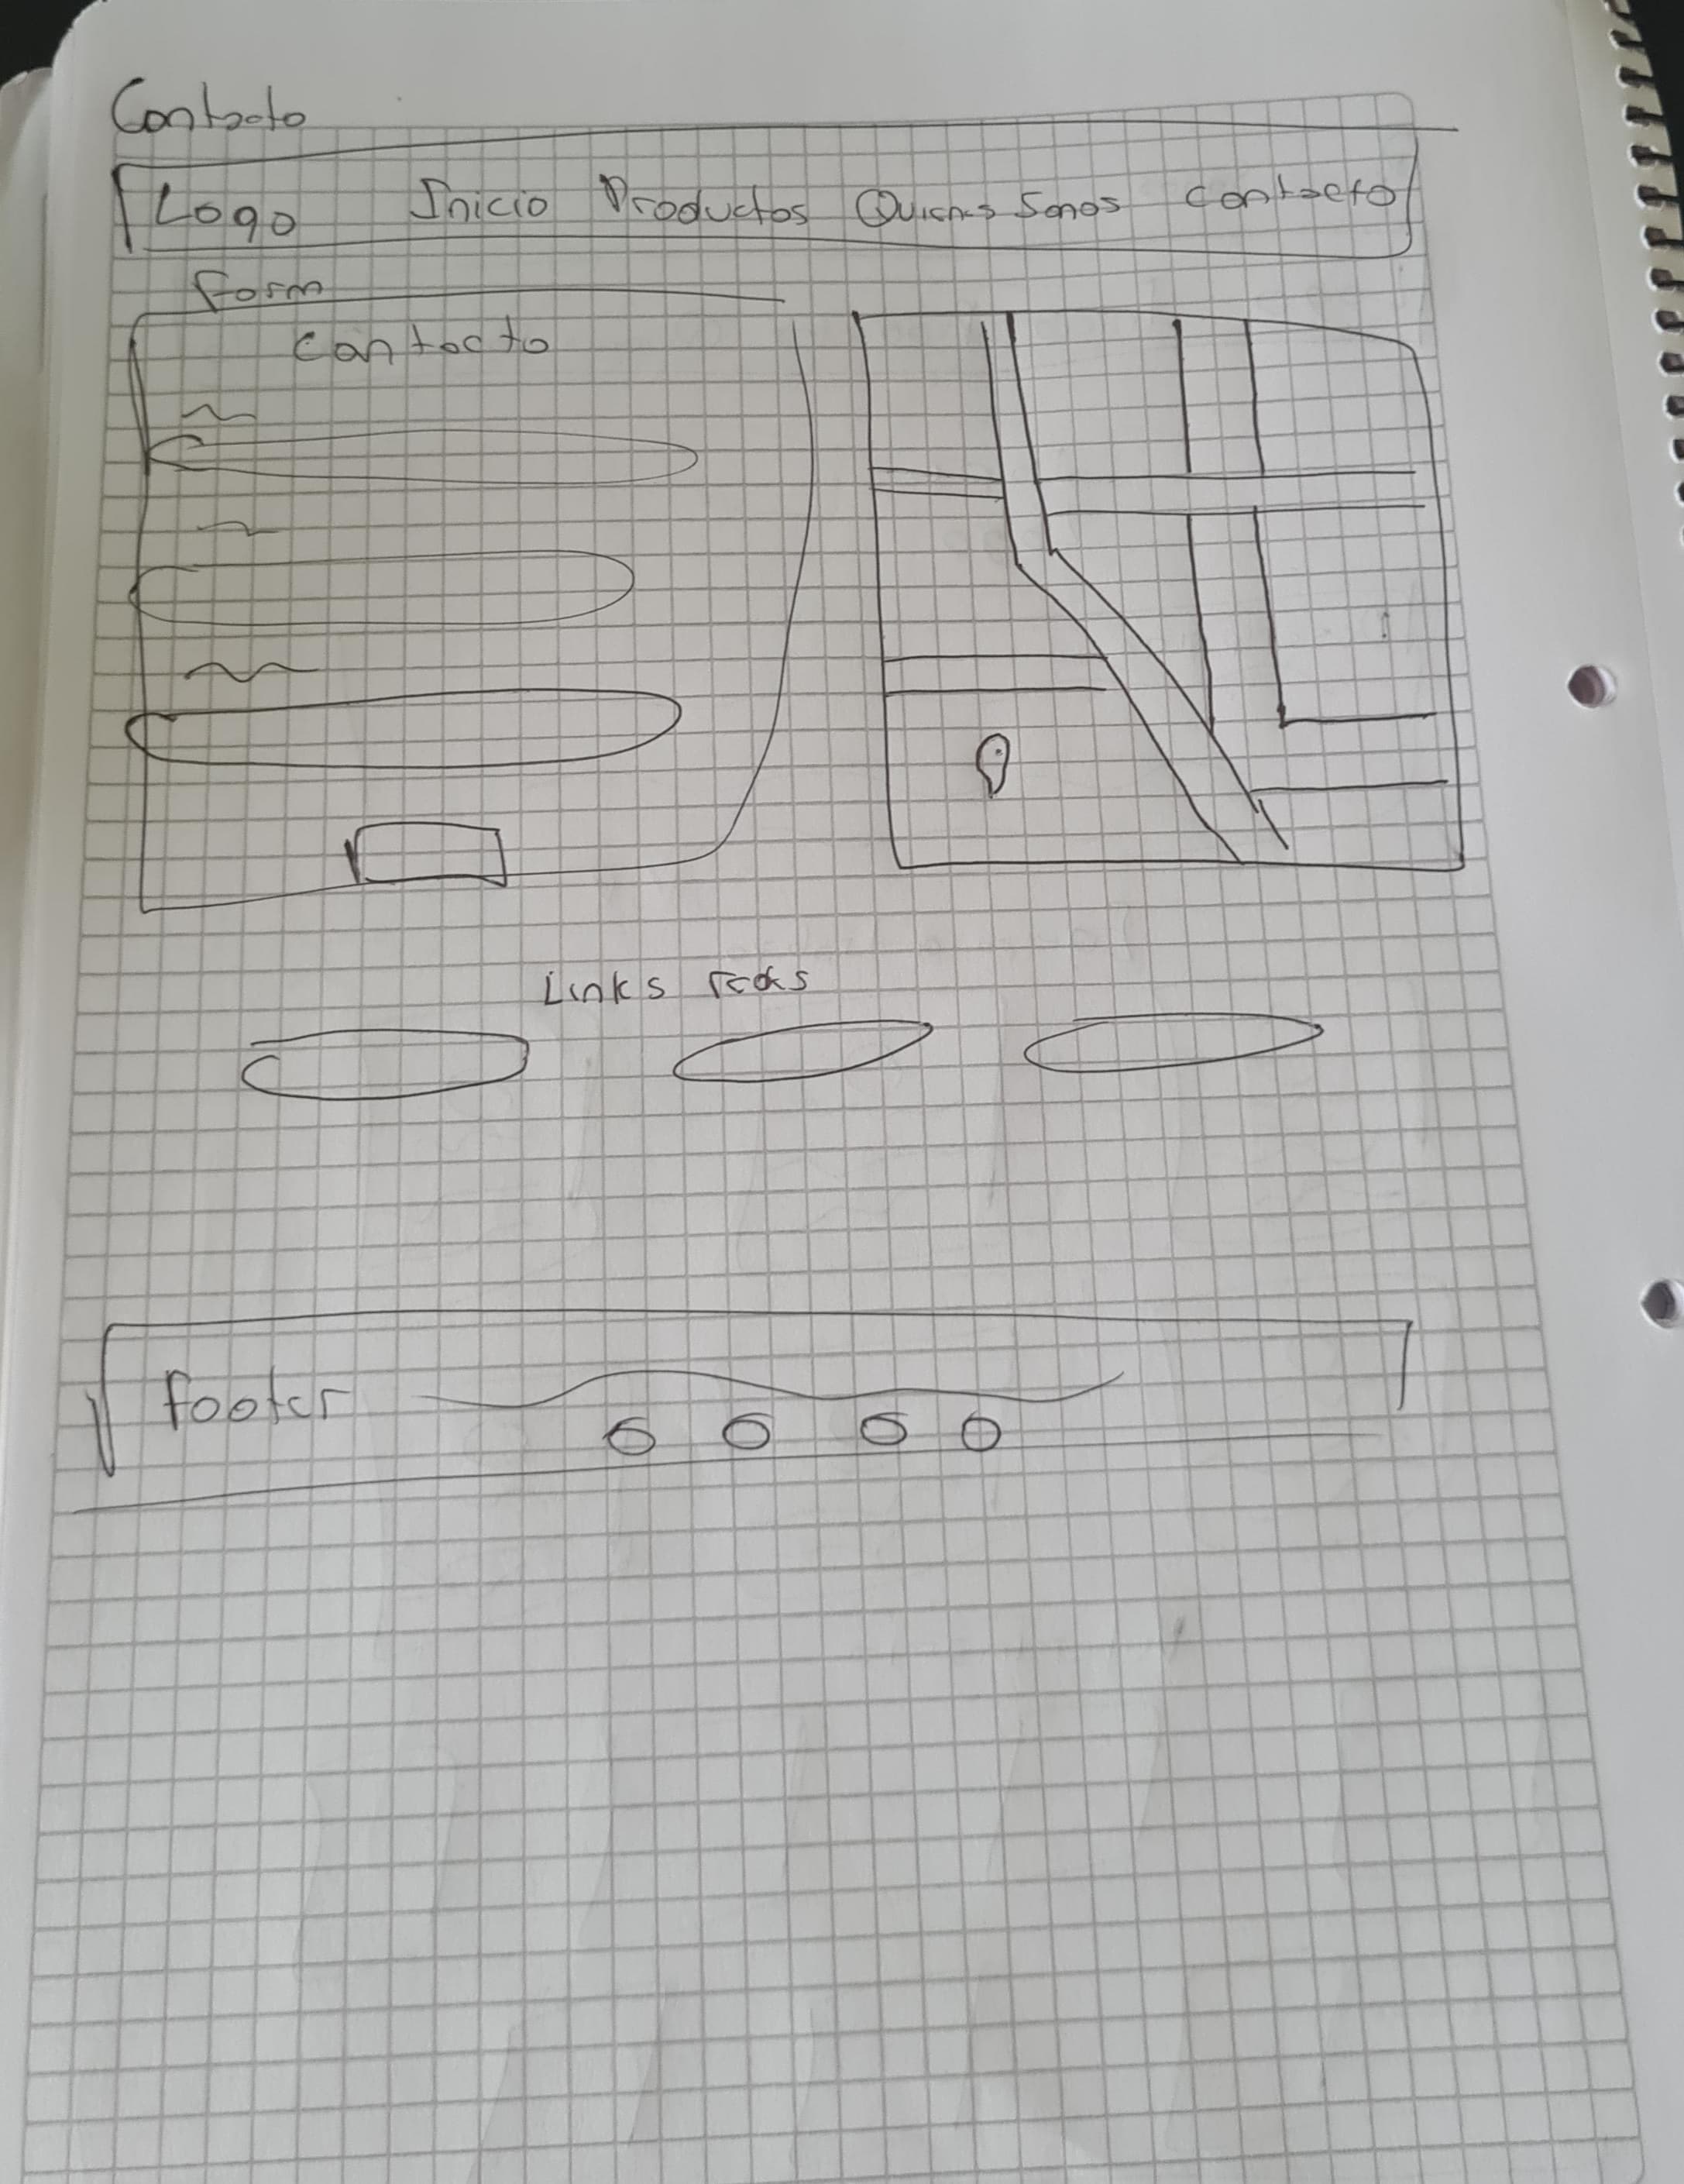 Contacto
Logo Inicio Productos Quienes Somos Contacto
Form
Contacto
Links redes
Footer